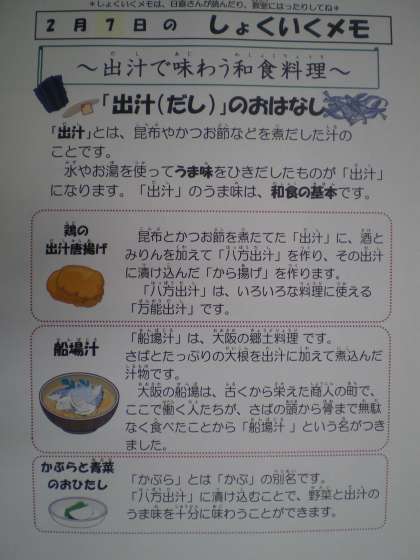 ＊しょくいくメモは、日直さんが読んだり、教室にはったりしてね＊
2月7日の しょくいくメモ
～出汁で味わう和食料理～
「出汁(だし)」のおはなし
「出汁」とは、昆布やかつお節などを煮だした汁の
ことです。
水やお湯を使ってうま味をひきだしたものが「出汁」
になります。「出汁」のうま味は、和食の基本です。
鶏の
出汁唐揚げ
昆布とかつお節を煮たてた「出汁」に、酒と
みりんを加えて「八方出汁」を作り、その出汁
に漬け込んだ「から揚げ」を作ります。
「八方出汁」は、いろいろな料理に使える
「万能出汁」です。
船場汁
「船場汁」は、大阪の郷土料理です。
さばとたっぷりの大根を出汁に加えて煮込んだ
汁物です。
大阪の船場は、古くから栄えた商人の町で、
ここで働く人たちが、さばの頭から骨まで無駄
なく食べたことから「船場汁」という名がつき
ました。
かぶらと青菜
のおひたし
「かぶら」とは「かぶ」の別名です。
「八方出汁」に漬け込むことで、野菜と出汁の
うま味を十分に味わうことができます。